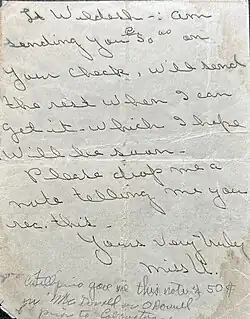 Lt Wildesh -: am
sending you $50.00 on
your check, will send
the rest when I can
get it - which I hope
will be soon -
Please drop me a
note telling me you
rec. this -
Yours Very truly
Miss U.
gave me this note & 50$
in McDowell or O'Dowell
prior to